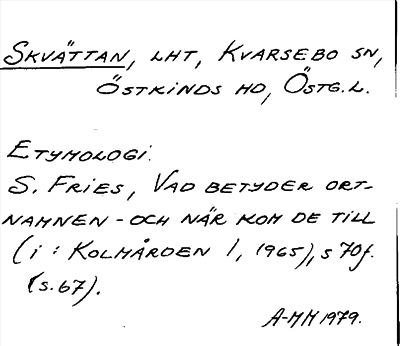 SKVÄTTAN, LHT, KVARSEBO SN,
ÖSTKINDS HD, ÖSTG.L.
ETYMOLOGI.
S. FRIES, VAD BETYDER ORT-
NAMNEN - OCH NÄR KOM DE TILL
(i : KOLMÅRDEN 1, 1965), s 70f.
(s.67).
A-MM 1979.